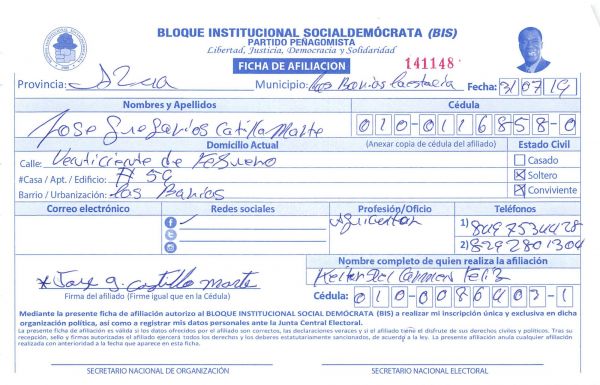 BLOQUE INSTITUCIONAL SOCIALDEMÓCRATA (BIS)
PARTIDO PEÑAGOMISTA
Libertad, Justicia, Democracia y Solidaridad
FICHA DE AFILIACION
141148
Provincia: Azua Municipio: Fecha: 31/07/19
Nombres y Apellidos Cédula
Jose Castillo Marte 010-0116858-0
Domicilio Actual (Anexar copia de cédula del afiliado) Estado Civil
Calle: de Febrero Casado
#Casa / Apt. / Edificio: # 59 Soltero
Barrio / Urbanización: Los Barrios Conviviente
Correo electrónico Redes sociales Profesión/Oficio Teléfonos
Agricultor 1) 8497534428
2) 8292801304
Nombre completo de quien realiza la afiliación
Del Carmen Feliz
* Jose g. castillo marte
Firma del afiliado (Firme igual que en la Cédula) Cédula: 010-0086907-1
Mediante la presente ficha de afiliación autorizo al BLOQUE INSTITUCIONAL SOCIAL DEMÓCRATA (BIS) a realizar mi inscripción única y exclusiva en dicha
organización política, así como a registrar mis datos personales ante la Junta Central Electoral.
La presente ficha de afiliación es válida si los datos ofrecidos por el afiliado son correctos, las declaraciones veraces y si el afiliado tiene el disfrute de sus derechos civiles y políticos. Tras su
recepción, sello y firmas autorizadas el afiliado ejercerá todos los derechos y los deberes estatutariamente sancionados, de acuerdo a la ley. La presente afiliación anula cualquier afiliación
realizada con anterioridad a la fecha que aparece en esta ficha.
SECRETARIO NACIONAL DE ORGANIZACIÓN SECRETARIO NACIONAL ELECTORAL